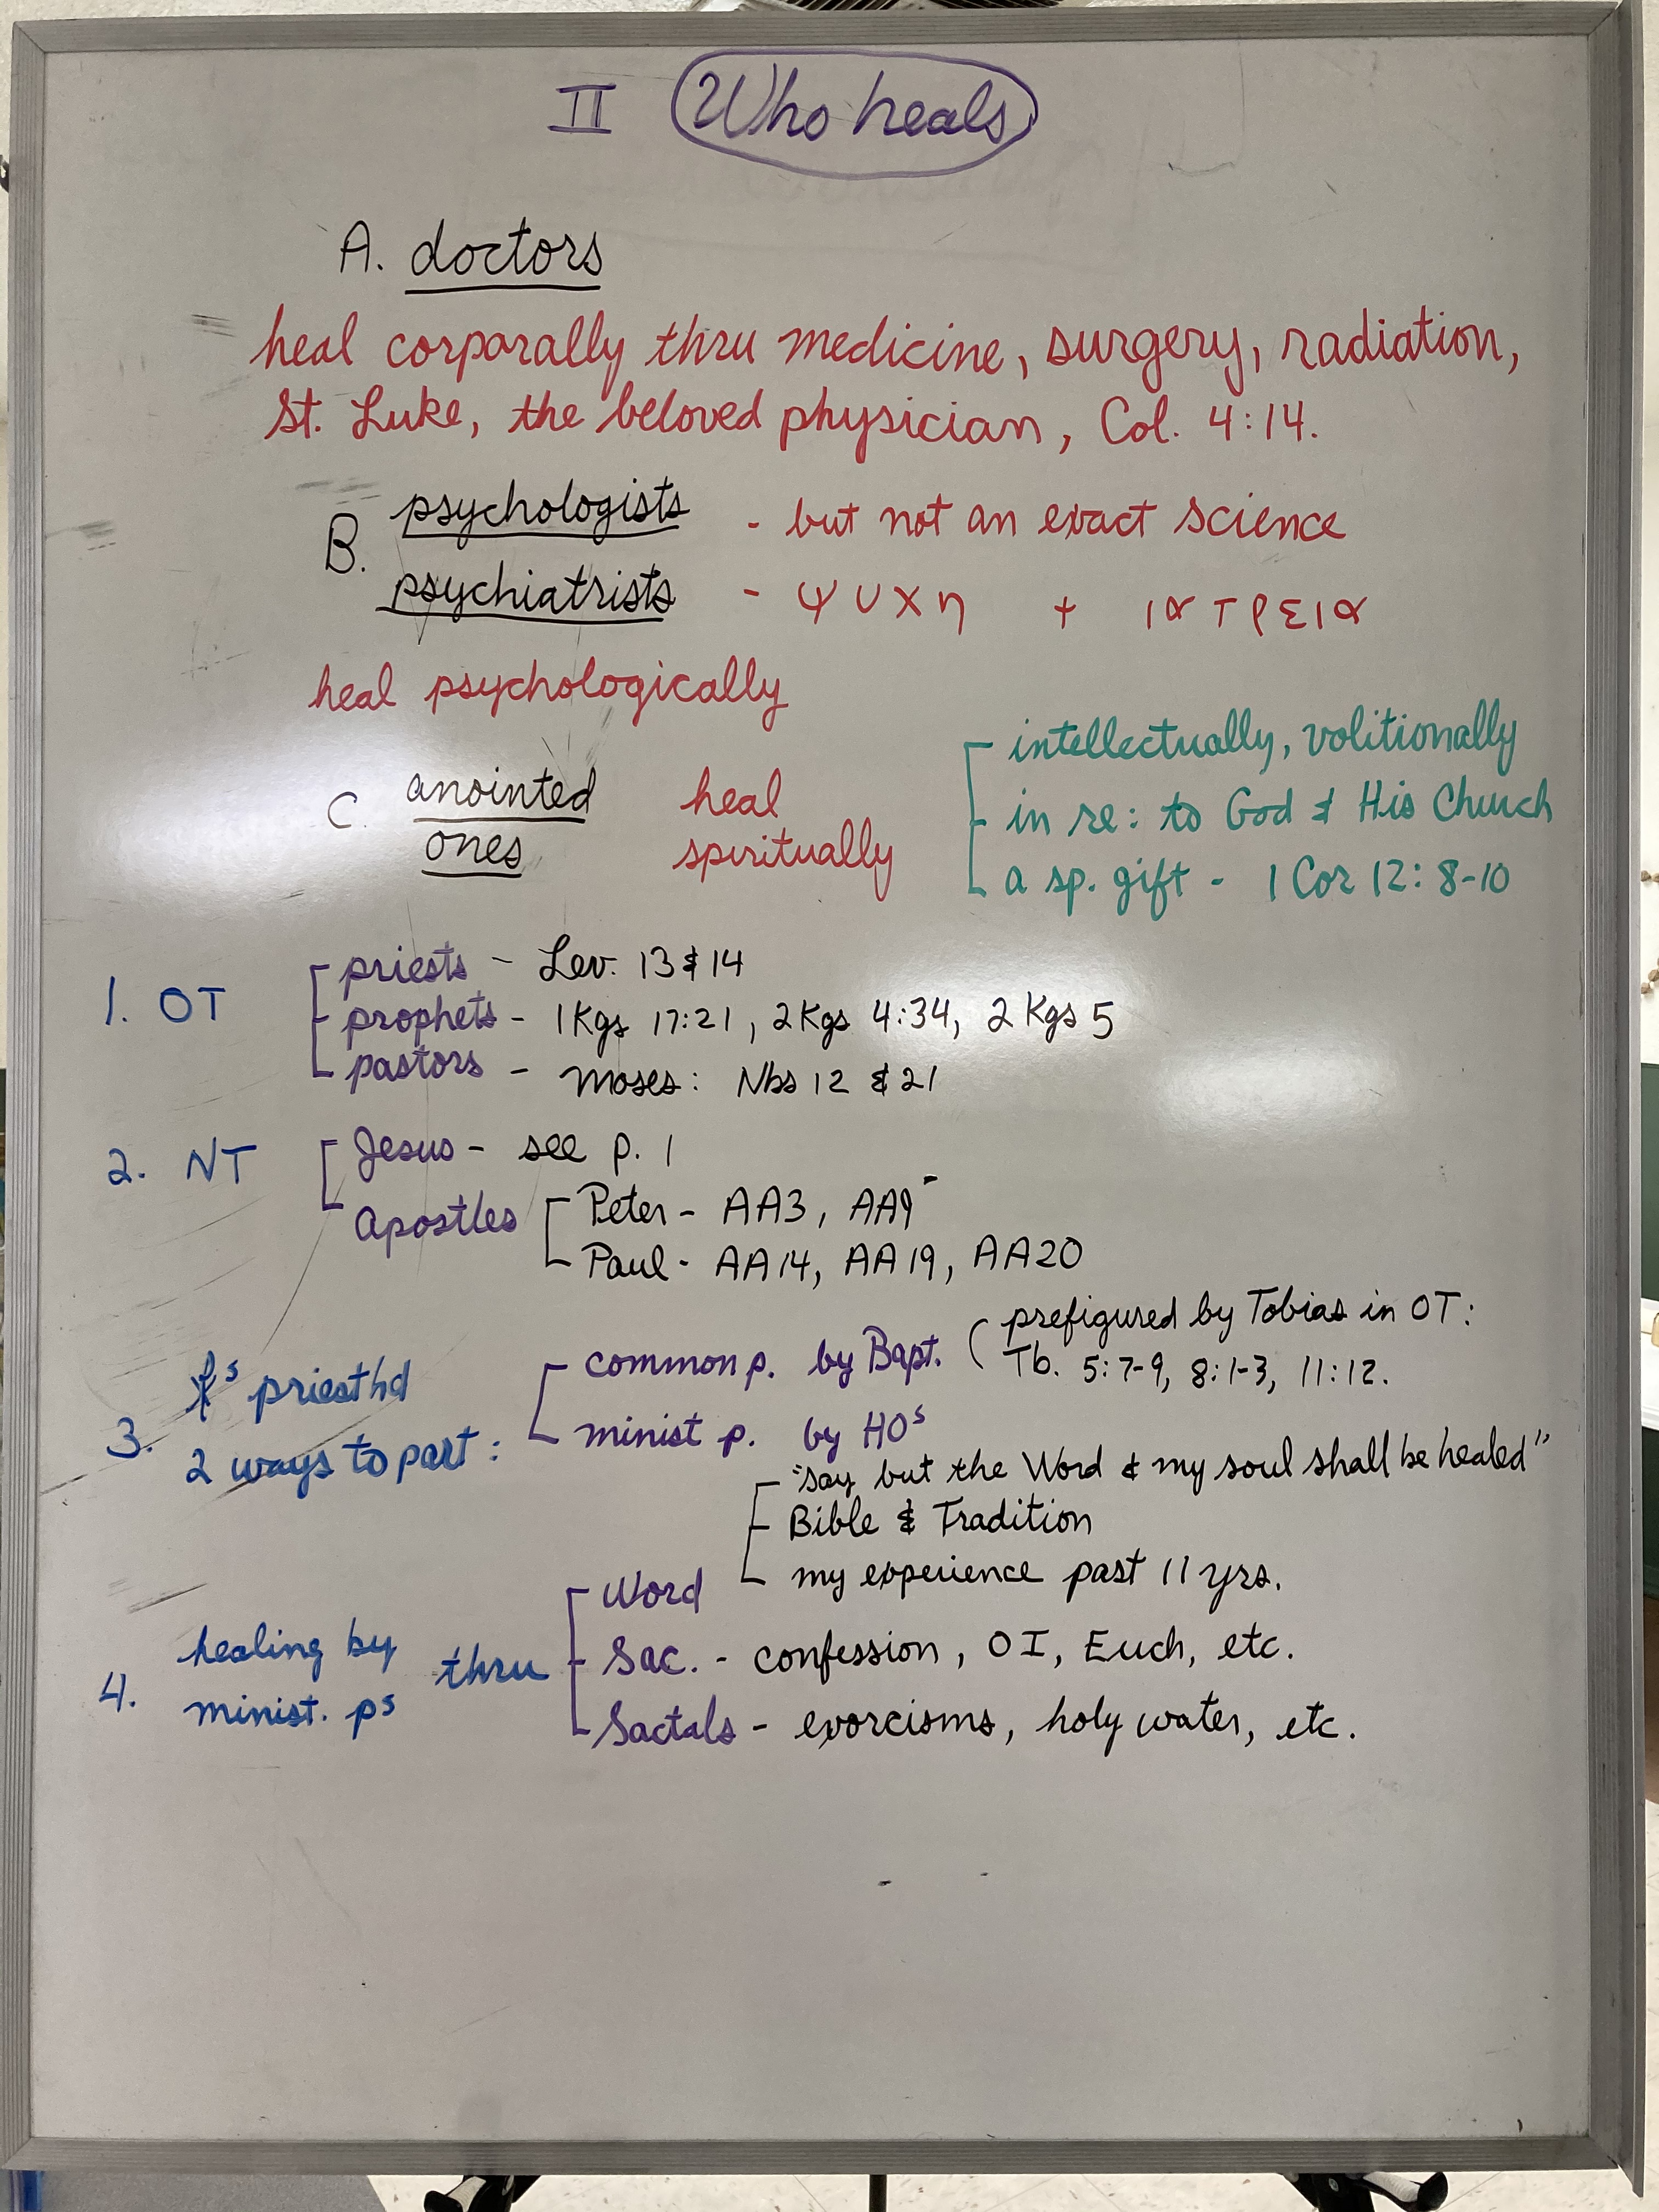 II Who heals
A. doctors
heal corporally thru medicine, surgery, radiation,
St. Luke, the beloved physician, Col. 4:14.
B. psychologists - but not an exact science
psychiatrists - ψυχη + ιατρεια
heal psychologically
C. anointed ones heal spiritually
intellectually, volitionally
in re: to God & His Church
a sp. gift - 1 Cor 12: 8-10
1. OT
priests - Lev. 13 & 14
prophets - 1Kgs 17:21, 2Kgs 4:34, 2 Kgs 5
pastors - Moses: Nbs 12 & 21
2. NT
Jesus - see p. 1
Apostles
Peter - AA3, AA9
Paul - AA14, AA19, AA20
3. priesthd
2 ways to part:
common p. by Bapt. (prefigured by Tobias in OT:
Tb. 5:7-9, 8:1-3, 11:12.
minist p. by HOs
4. healing by
minist. ps thru
Word
"say but the Word & my soul shall be healed"
Bible & Tradition
my experience past 11 yrs.
Sac. - confession, OI, Euch, etc.
Sactals - exorcisms, holy water, etc.